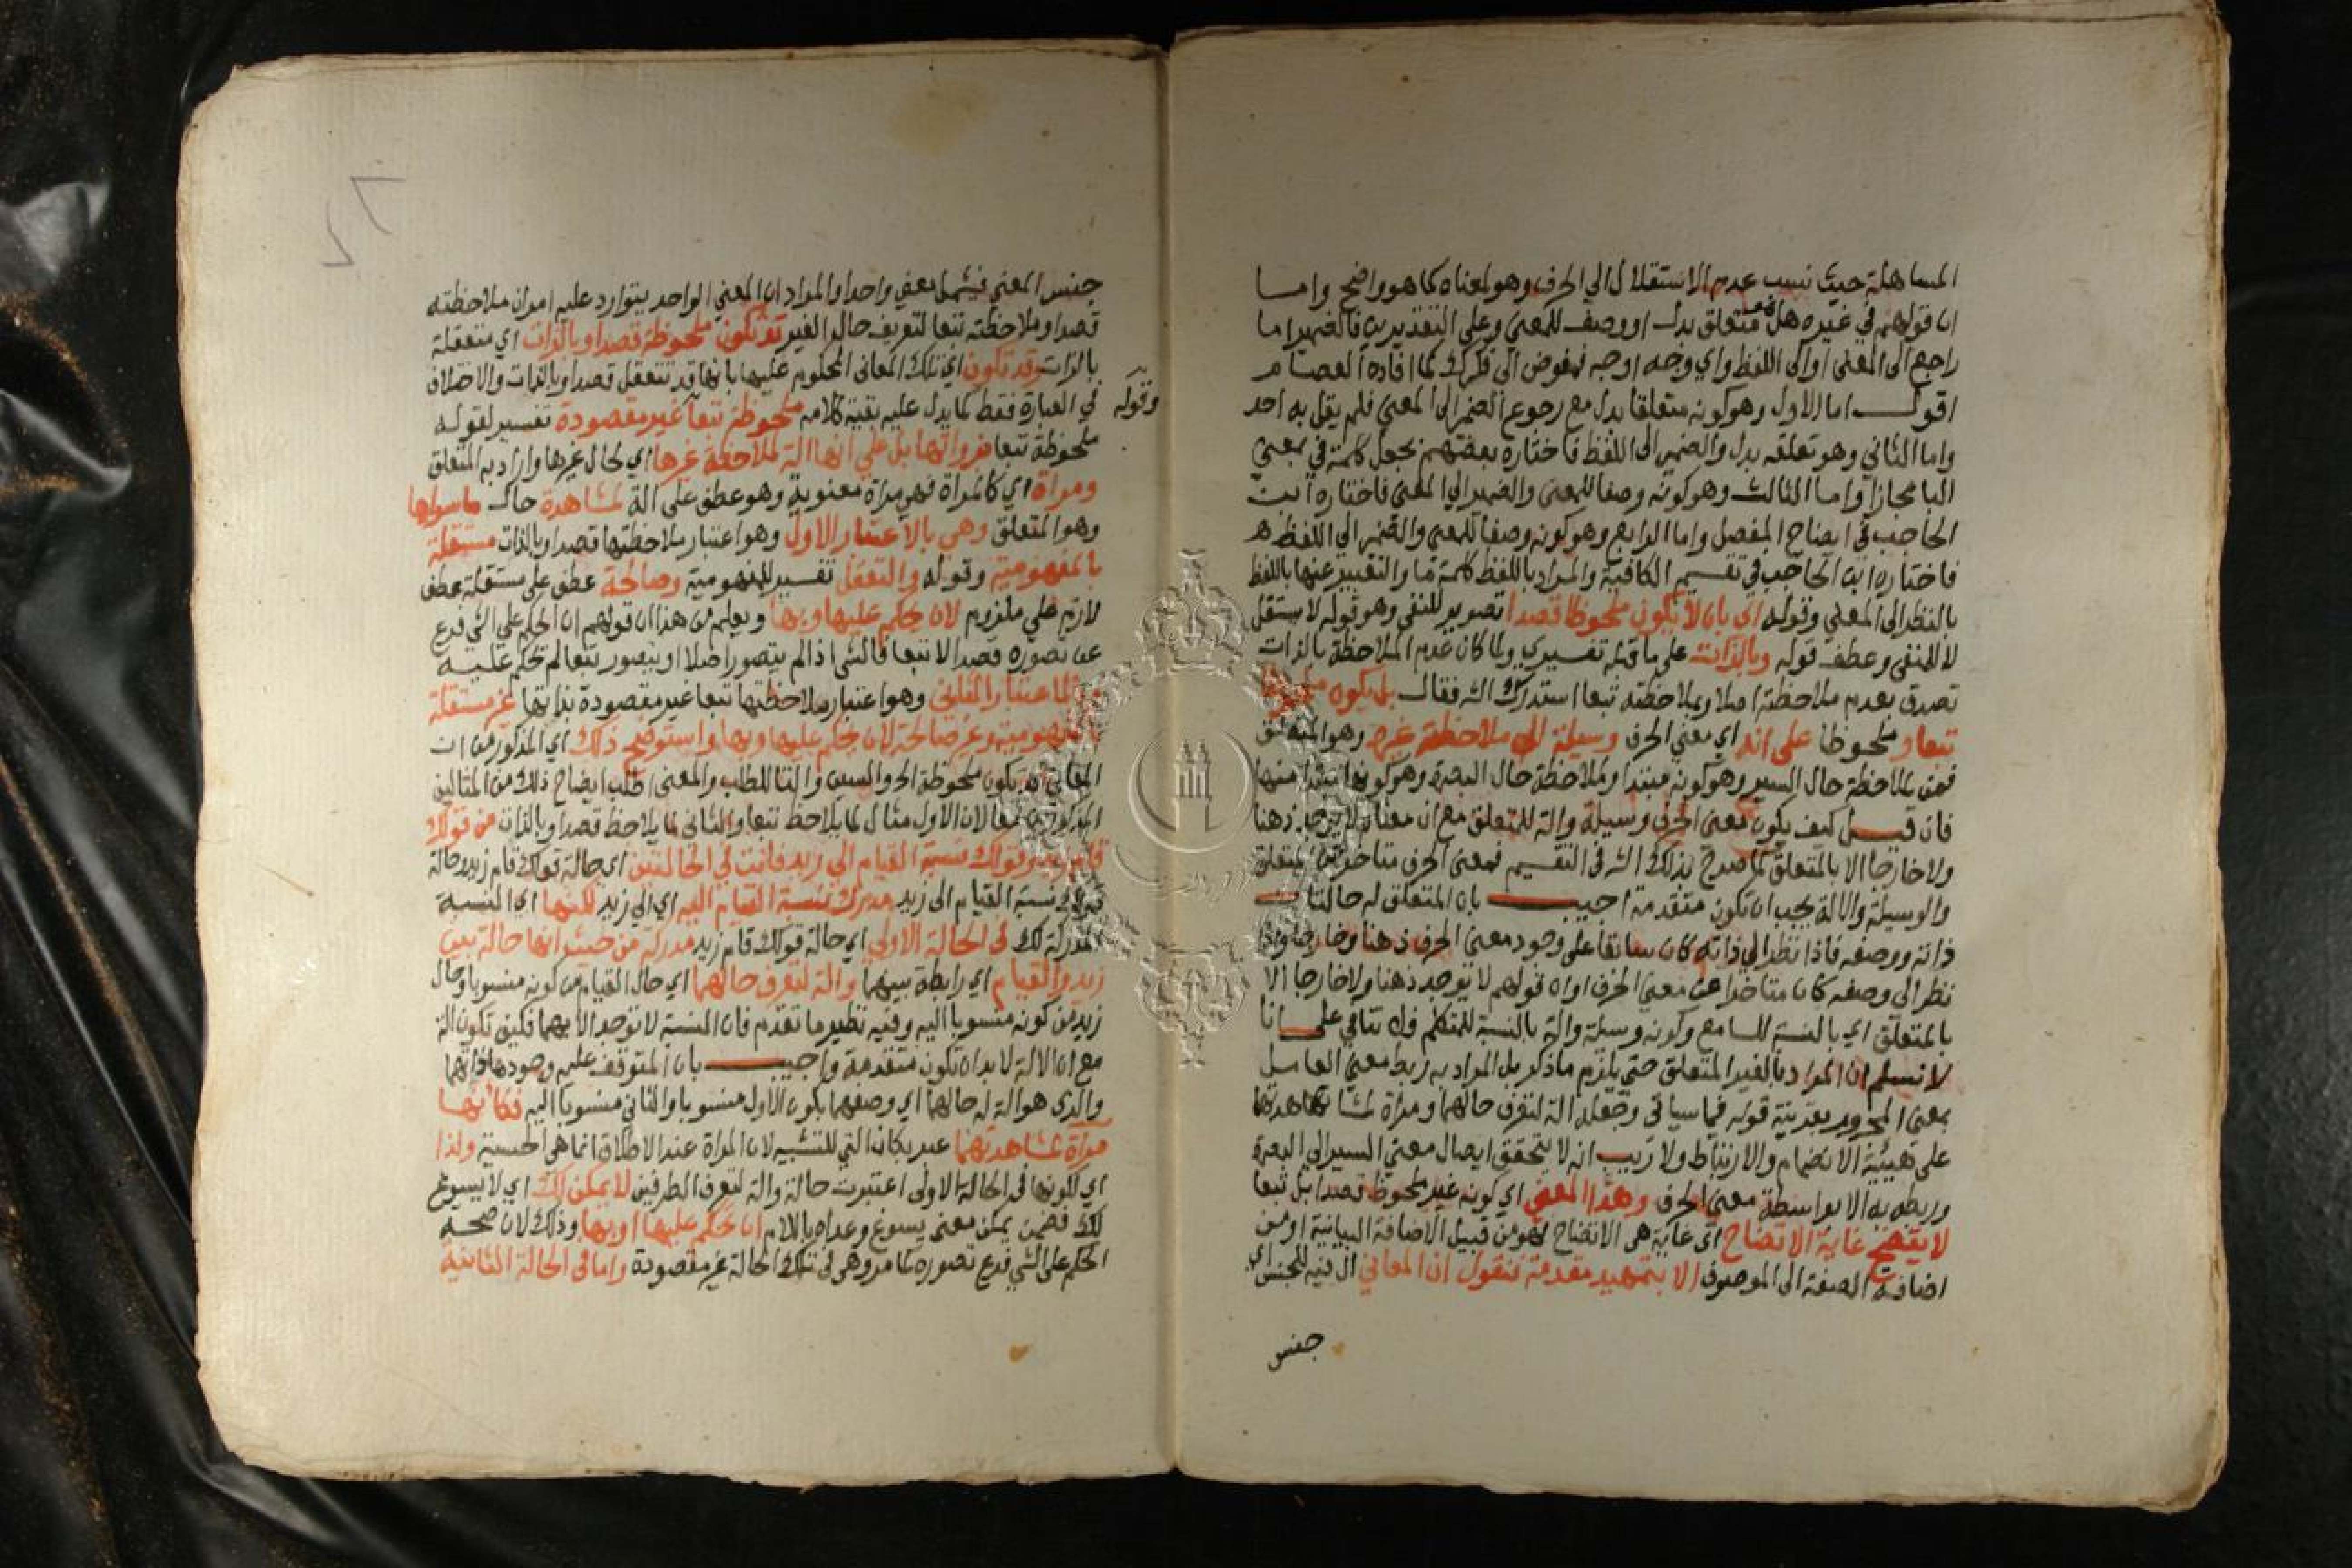 المساهلة حيث نسب عدم الاستقلال الي الحرف وهو لمعناه كما هو واضح واما
ان قولهم في غيره هل هو متعلق بدل او وصف للمعنى وعلي التقديرين فالضمير اما
راجع الى المعنى او الى اللفظ واي وجه اوجه مفوض الى فكرك لما افاده العصام
اقول اما الاول وهو كونه متعلقا بدل مع رجوع الضمير الى المعنى فلم يقل به احد
واما الثاني وهو تعلقه بدل والضمير الى اللفظ فاختاره بعضهم بجعل كلمة في بمعنى
البا مجازا واما الثالث وهو كونه وصفا للمعنى والضمير الي المعنى فاختاره ابن
الحاجب في ايضاح المفصل واما الرابع وهو كونه وصفا للمعنى والضمير الي اللفظ
فاختاره ابن الحاجب في تقسيم الكافية والمراد باللفظ كلمة ما والتعبير عنها باللفظ
بالنظر الى المعنى وقوله اي بان لا يكون ملحوظا قصدا تصوير للنفي وهو قوله لا يستقل
لا للمنفى وعطف قوله وبالذات على ما قبله تفسيري ولما كان عدم الملاحظة بالذات
تصدق بعدم ملاحظته اصلا وبملاحظته تبعا استدرك الش فقال بل يكون ملحوظا
تبعا وملحوظا على انه اي معنى الحرف وسيلة الى ملاحظة غيره وهو المتعلق
فمن لملاحظة حال السير وهو كونه مبتدا ولملاحظة حال البصرة وهو كونها مبتدا منها
فان قيل كيف يكون معنى الحرف وسيلة والة للمتعلق مع ان معناه لا يوجد ذهنا
ولا خارجا الا بالمتعلق كما صرح بذلك الش في التقسيم فمعنى الحرف متاخر عن المتعلق
والوسيلة والالة يجب ان تكون متقدمة اجيب بان المتعلق له حالتان
ذاته ووصفه فاذا نظر الي ذاته كان سابقا على وجود معنى الحرف ذهنا وخارجا واذا
نظر الى وصفه كان متاخرا عن معنى الحرف او ان قولهم لا توجد ذهنا ولا خارجا الا
بالمتعلق اي بالنسبة للسامع وكونه وسيلة والة بالنسبة للمتكلم فلا تنافي على انا
لا نسلم ان المراد بالغير المتعلق حتى يلزم ما ذكر بل المراد به ربط معنى العامل
بمعنى المجرور بقرينة قوله فيما سياتي وجعله الة لتعرف حالهما ومراة لمشاهدتهما
على هيئة الانضمام والارتباط ولا ريب انه لا يتحقق ايصال معنى السير الى البصرة
وربطه به الا بواسطة معنى الحرف وهذا المعنى اي كونه غير ملحوظ قصدا بل تبعا
لا يتضح غاية الاتضاح اي غاية هي الاتضاح فهو من قبيل الاضافة البيانية او من
اضافة الصفة الى الموصوف الا بتمهيد مقدمة فنقول ان المعاني ال فيه للجنس اي
جنس
جنس المعنى فيشمل معني واحدا والمراد ان المعنى الواحد يتوارد عليه امران ملاحظته
قصدا وملاحظته تبعا لتعريف حال الغير قد تكون ملحوظة قصدا وبالذات اي متعقلة
بالذات وقد تكون اي تلك المعاني المحكوم عليها بانها قد تتعقل قصدا وبالذات والاختلاف
في العبارة فقط كما يدل عليه بقية كلامه ملحوظة تبعا غير مقصودة تفسير لقوله
وقوله
ملحوظة تبعا بذواتها بل على انها الة لملاحظة غيرها اي لحال غيرها واراد به المتعلق
ومراة اي كالمراة فهي مراة معنوية وهو عطف على الة لمشاهدة حال ما سواها
وهو المتعلق وهي بالاعتبار الاول وهو اعتبار ملاحظتها قصدا وبالذات مستقلة
بالمفهومية وقوله والتعقل تفسير للمفهومية وصالحة عطف على مستقلة عطف
لازم على ملزوم لان يحكم عليها وبها ويعلم من هذا ان قولهم ان الحكم علي الشي فرع
عن تصوره قصدا لا تبعا فالشي اذا لم يتصور اصلا او يتصور تبعا لم يحكم عليه
وبالاعتبار الثاني وهو اعتبار ملاحظتها تبعا غير مقصودة بذاتها غير مستقلة
بالمفهومية وغير صالحة لان يحكم عليها وبها واستوضح ذلك اي المذكور من ان
المعاني قد يكون ملحوظة الخ والسين والتا للطلب والمعنى اطلب ايضاح ذلك من المثالين
المذكورين معا لان الاول مثال لما يلاحظ تبعا والثاني لما يلاحظ قصدا وبالذات من قولك
قام زيد وقولك نسبة القيام الي زيد فانت في الحالتين اي حالة قولك قام زيد وحالة
قولك نسبة القيام الى زيد مدرك نسبة القيام اليه اي الي زيد لكنها اي النسبة
المدركة لك في الحالة الاولى اي حالة قولك قام زيد مدركة من حيث انها حالة بين
زيد والقيام اي رابطة بينهما والة لتعرف حالهما اي حال القيام من كونه منسوبا وحال
زيد من كونه منسوبا اليه وفيه نظير ما تقدم فان النسبة لا توجد الا بهما فكيف تكون الة
مع ان الالة لا بد ان تكون متقدمة واجيب بان المتوقف عليه وجودها ذاتهما
والذي هو الة له حالهما اي وصفهما بكون الاول منسوبا والثاني منسوبا اليه فكانها
مرآة لمشاهدتهما عبر بكان التي للتشبيه لان المراة عند الاطلاق انما هي الحسية ولذا
اي لكونها في الحالة الاولى اعتبرت حالة والة لتعرف الطرفين لا يمكن لك اي لا يسوغ
لك فضمن يمكن معنى يسوغ وعداه باللام ان تحكم عليها او بها وذلك لان صحة
الحكم على الشي فرع تصوره كما مر وهي في تلك الحالة غير مقصودة واما في الحالة الثانية